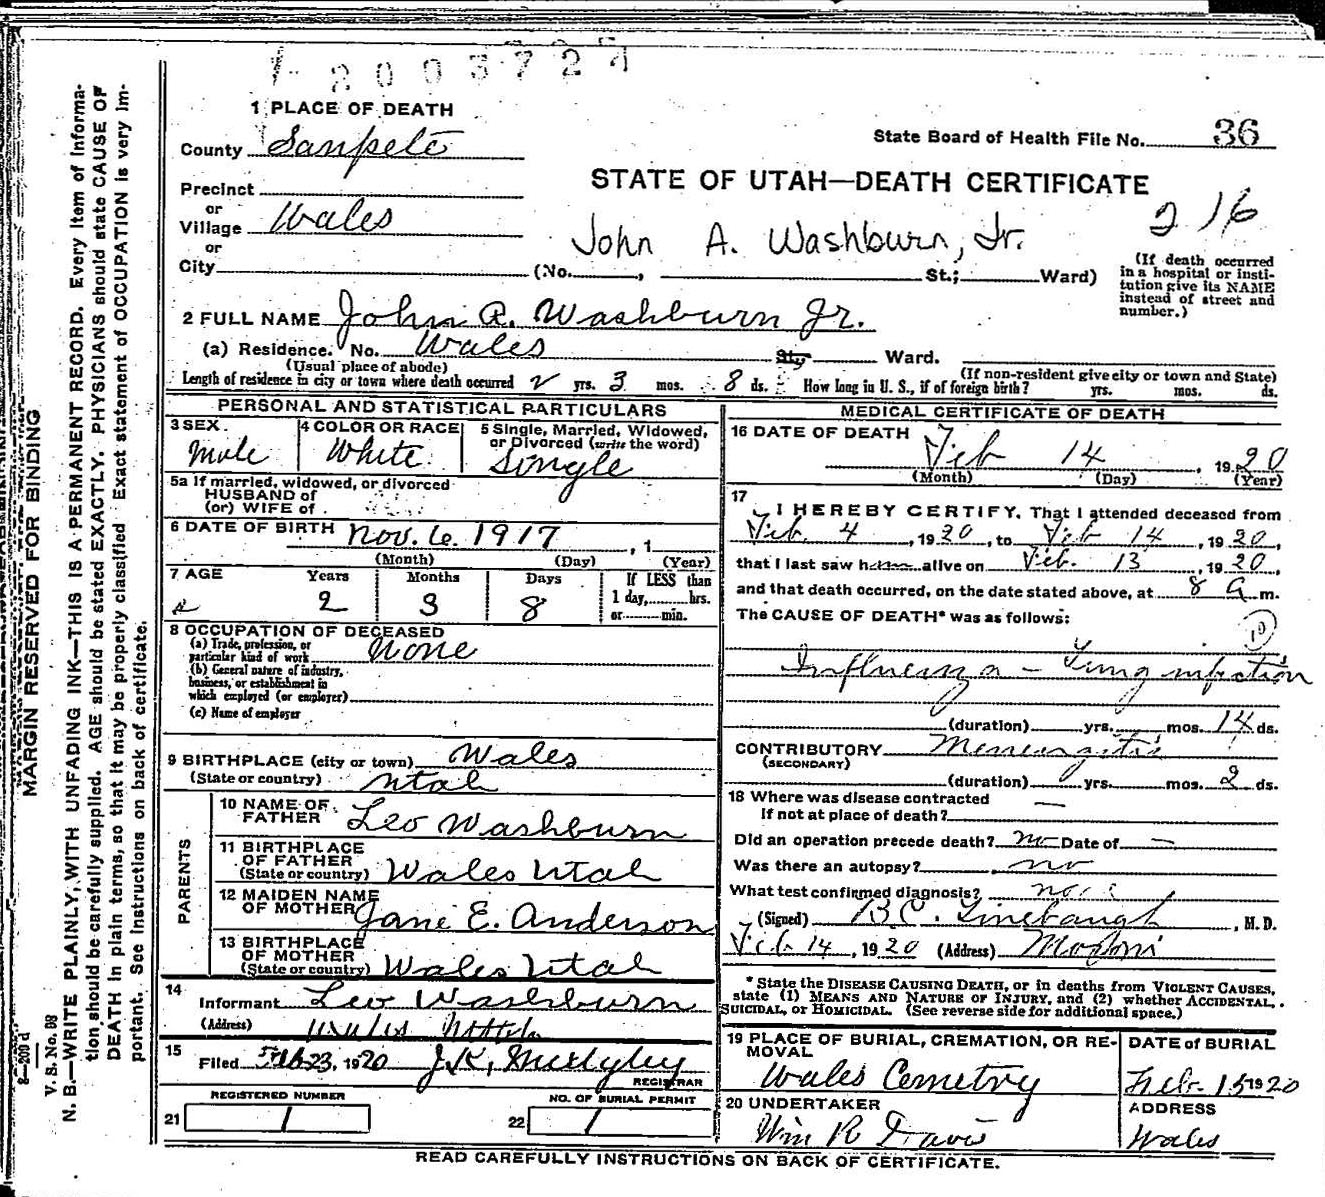 2003727
1 PLACE OF DEATH
County Sanpete
State Board of Health File No. 36
STATE OF UTAH—DEATH CERTIFICATE
Precinct
or
Village Wales
216
or
John A. Washburn, Jr.
City (No. , St.; Ward)
(If death occurred
in a hospital or insti-
tution give its NAME
instead of street and
number.)
2 FULL NAME John A. Washburn Jr.
(a) Residence. No. Wales St., Ward.
(Usual place of abode) (If non-resident give city or town and State)
Length of residence in city or town where death occurred 2 yrs. 3 mos. 8 ds. How long in U. S., if of foreign birth? yrs. mos. ds.
PERSONAL AND STATISTICAL PARTICULARS
3 SEX. 4 COLOR OR RACE 5 Single, Married, Widowed,
or Divorced (write the word)
Male White Single
5a If married, widowed, or divorced
HUSBAND of
(or) WIFE of
6 DATE OF BIRTH Nov. 6. 1917 , 1
(Month) (Day) (Year)
7 AGE Years Months Days If LESS than
1 day, hrs.
or min.
2 2 3 8
8 OCCUPATION OF DECEASED
(a) Trade, profession, or
particular kind of work None
(b) General nature of industry,
business, or establishment in
which employed (or employer)
(c) Name of employer
9 BIRTHPLACE (city or town) Wales
(State or country) Utah
PARENTS
10 NAME OF
FATHER Leo Washburn
11 BIRTHPLACE
OF FATHER
(State or country) Wales Utah
12 MAIDEN NAME
OF MOTHER Jane E. Anderson
13 BIRTHPLACE
OF MOTHER
(State or country) Wales Utah
14
Informant Leo Washburn
(Address) Wales Utah
15
Filed Feb 23, 1920 J. K.
REGISTRAR
REGISTERED NUMBER NO. OF BURIAL PERMIT
21 1 22 1
MEDICAL CERTIFICATE OF DEATH
16 DATE OF DEATH Feb 14 , 1920
(Month) (Day) (Year)
17
I HEREBY CERTIFY, That I attended deceased from
Feb 4 , 1920 , to Feb 14 , 1920,
that I last saw him alive on Feb. 13 , 1920,
and that death occurred, on the date stated above, at 8 A m.
The CAUSE OF DEATH* was as follows:
10
Influenza – Lung infection
(duration) yrs. mos. 14 ds.
CONTRIBUTORY Meningitis
(SECONDARY)
(duration) yrs. mos. 2 ds.
18 Where was disease contracted
If not at place of death? —
Did an operation precede death? no Date of —
Was there an autopsy? no
What test confirmed diagnosis?
(Signed) B.C. Linebaugh , M. D.
Feb 14 , 1920 (Address) Moroni
* State the DISEASE CAUSING DEATH, or in deaths from VIOLENT CAUSES,
state (1) MEANS AND NATURE OF INJURY, and (2) whether ACCIDENTAL,
SUICIDAL, or HOMICIDAL. (See reverse side for additional space.)
19 PLACE OF BURIAL, CREMATION, OR RE-
MOVAL
Wales Cemetry
DATE of BURIAL
Febr. 15 1920
20 UNDERTAKER
Wm R Davis
ADDRESS
Wales
READ CAREFULLY INSTRUCTIONS ON BACK OF CERTIFICATE.
MARGIN RESERVED FOR BINDING
V. S. No. 88
N. B.—WRITE PLAINLY, WITH UNFADING INK—THIS IS A PERMANENT RECORD. Every item of informa-
tion should be carefully supplied. AGE should be stated EXACTLY. PHYSICIANS should state CAUSE OF
DEATH in plain terms, so that it may be properly classified. Exact statement of OCCUPATION is very im-
portant. See instructions on back of certificate.